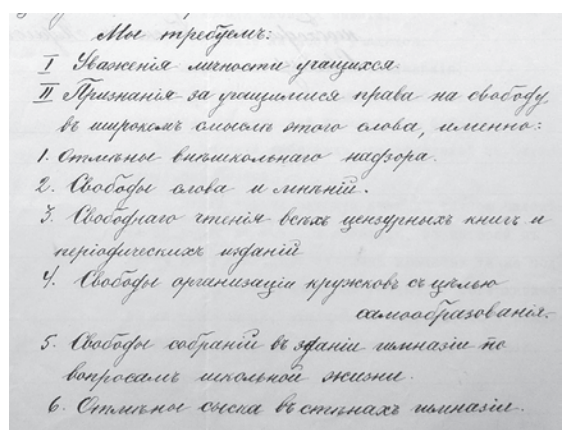 Мы требуемъ:
I Уваженія личности учащихся.
II Признанія за учащимися права на свободу
въ широкомъ смыслѣ этого слова, именно:
1. Отмѣны внѣшкольнаго надзора.
2. Свободы слова и мнѣній.
3. Свободнаго чтенія всѣхъ цензурныхъ книгъ и
періодическихъ изданій
4. Свободы организаціи кружковъ съ цѣлью
самообразованія.
5. Свободы собраній въ зданіи гимназіи по
вопросамъ школьной жизни.
6. Отмѣны сыска въ стѣнахъ гимназіи.